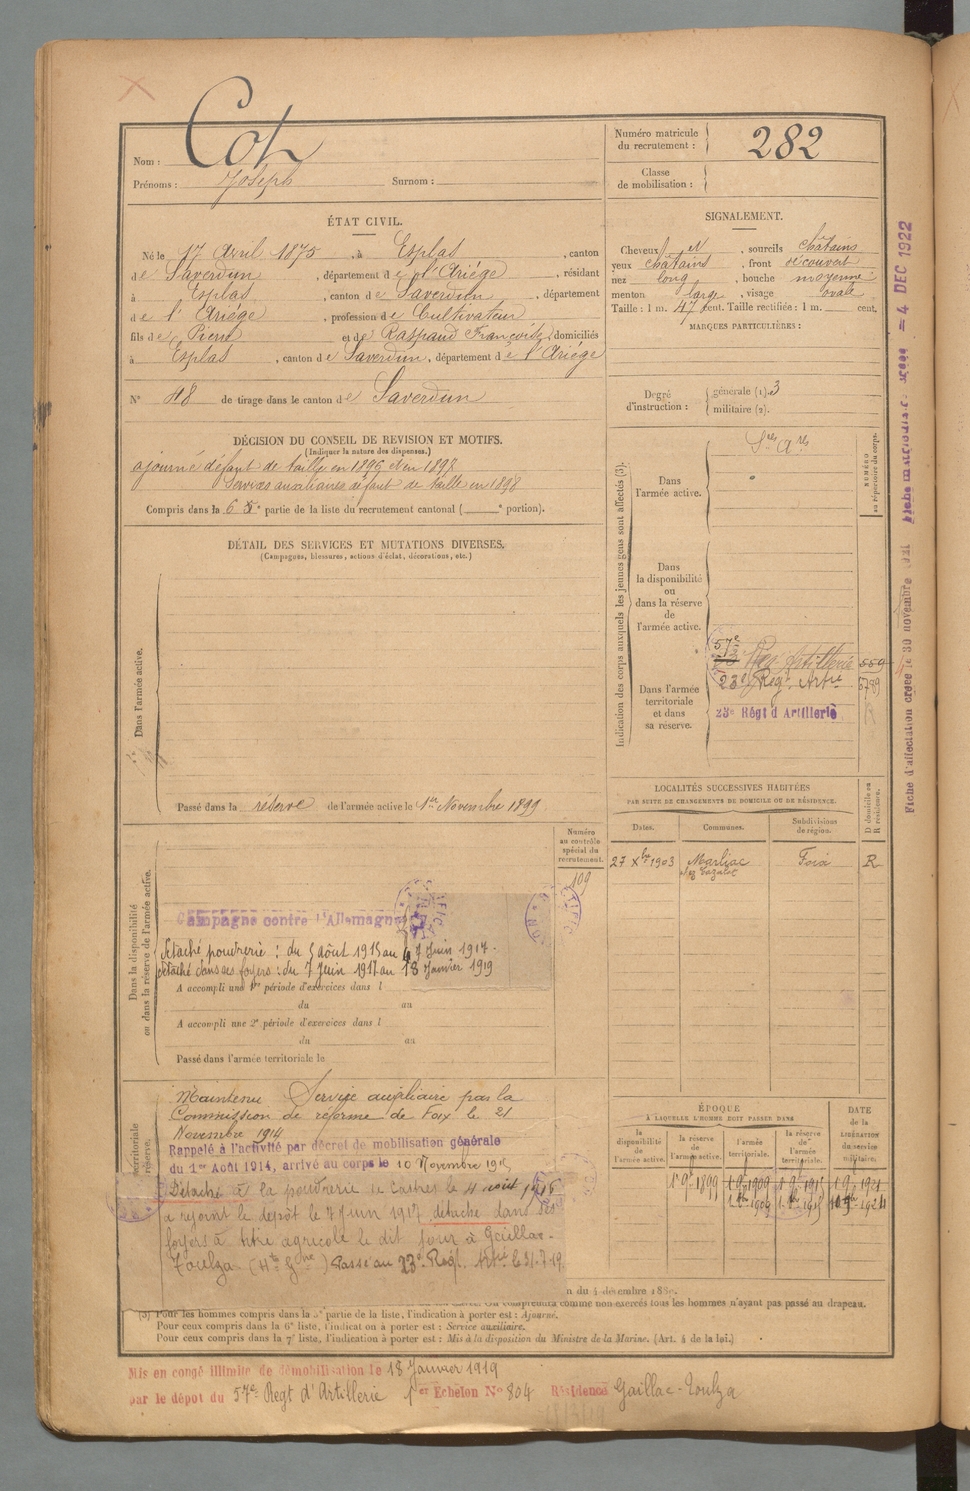 Nom : Cot
Prénoms : Joseph Surnom :
Numéro matricule du recrutement : 282
Classe de mobilisation :
ÉTAT CIVIL.
Né le 17 Avril 1875, à Esplas, canton
de Saverdun, département de l'Ariége, résidant
à Esplas, canton de Saverdun, département
de l'Ariége, profession de Cultivateur
fils de Pierre et de Raspaud Françoise, domiciliés
à Esplas, canton de Saverdun, département de l'Ariége
N° 48 de tirage dans le canton de Saverdun
SIGNALEMENT.
Cheveux et, sourcils châtains
yeux châtains, front découvert
nez long, bouche moyenne
menton large, visage ovale
Taille : 1 m. 47 cent. Taille rectifiée : 1 m. cent.
MARQUES PARTICULIÈRES :
Degré d'instruction : générale (1). 3
militaire (2).
DÉCISION DU CONSEIL DE REVISION ET MOTIFS.
(Indiquer la nature des dispenses.)
ajourné défaut de taille en 1896 et en 1897
Services auxiliaires défaut de taille en 1898
Compris dans la 6e partie de la liste du recrutement cantonal ( e portion).
DÉTAIL DES SERVICES ET MUTATIONS DIVERSES.
(Campagnes, blessures, actions d'éclat, décorations, etc.)
Dans l'armée active.
Passé dans la réserve de l'armée active le 1er Novembre 1899
Indication des corps auxquels les jeunes gens sont affectés (3).
NUMÉRO au répertoire du corps.
Dans l'armée active.
Dans la disponibilité ou dans la réserve de l'armée active.
Dans l'armée territoriale et dans sa réserve.
57e
Reg Artillerie 559
23e Régt Artie 5789
23e Régt d'Artillerie
LOCALITÉS SUCCESSIVES HABITÉES
PAR SUITE DE CHANGEMENTS DE DOMICILE OU DE RÉSIDENCE.
Dates. Communes. Subdivisions de région. D domicile ou R résidence.
27 Xbre 1903 Marliac Foix R
Numéro au contrôle spécial du recrutement.
109
Dans la disponibilité ou dans la réserve de l'armée active.
Campagne contre l'Allemagne
détaché poudrerie : du 5 août 1915 au 7 Juin 1917.
détaché dans ses foyers : du 7 Juin 1917 au 18 Janvier 1919
A accompli une 1re période d'exercices dans l
du au
A accompli une 2e période d'exercices dans l
du au
Passé dans l'armée territoriale le
Maintenu Service auxiliaire par la
Commission de réforme de Foix le 21
Novembre 1914
Rappelé à l'activité par décret de mobilisation générale
du 1er Août 1914, arrivé au corps le 10 Novembre 191
Détaché à la poudrerie de Castres le 4 août 1915
a rejoint le dépôt le 7 Juin 1917, détaché dans ses
foyers à titre agricole le dit jour à Gaillac-
Toulza (Hte Gne) Passé au 23e Régt Artie le 31.7.19
ÉPOQUE
À LAQUELLE L'HOMME DOIT PASSER DANS
la disponibilité de l'armée active. la réserve de l'armée active. l'armée territoriale. la réserve de l'armée territoriale.
DATE de la LIBÉRATION du service militaire.
1 9e 1899 1 9e 1909 1 9e 1915 1 9e 1921
n du 4 décembre 188
comme non exercés tous les hommes n'ayant pas passé au drapeau.
(3) Pour les hommes compris dans la 5e partie de la liste, l'indication à porter est : Ajourné.
Pour ceux compris dans la 6e liste, l'indication à porter est : Service auxiliaire.
Pour ceux compris dans la 7e liste, l'indication à porter est : Mis à la disposition du Ministre de la Marine. (Art. 4 de la loi.)
Mis en congé illimité de démobilisation le 18 Janvier 1919
par le dépot du 57e Regt d'Artillerie 1er Echelon N° 804 Résidence Gaillac-Toulza
Fiche d'affectation créée le 30 novembre
4 DEC 1922